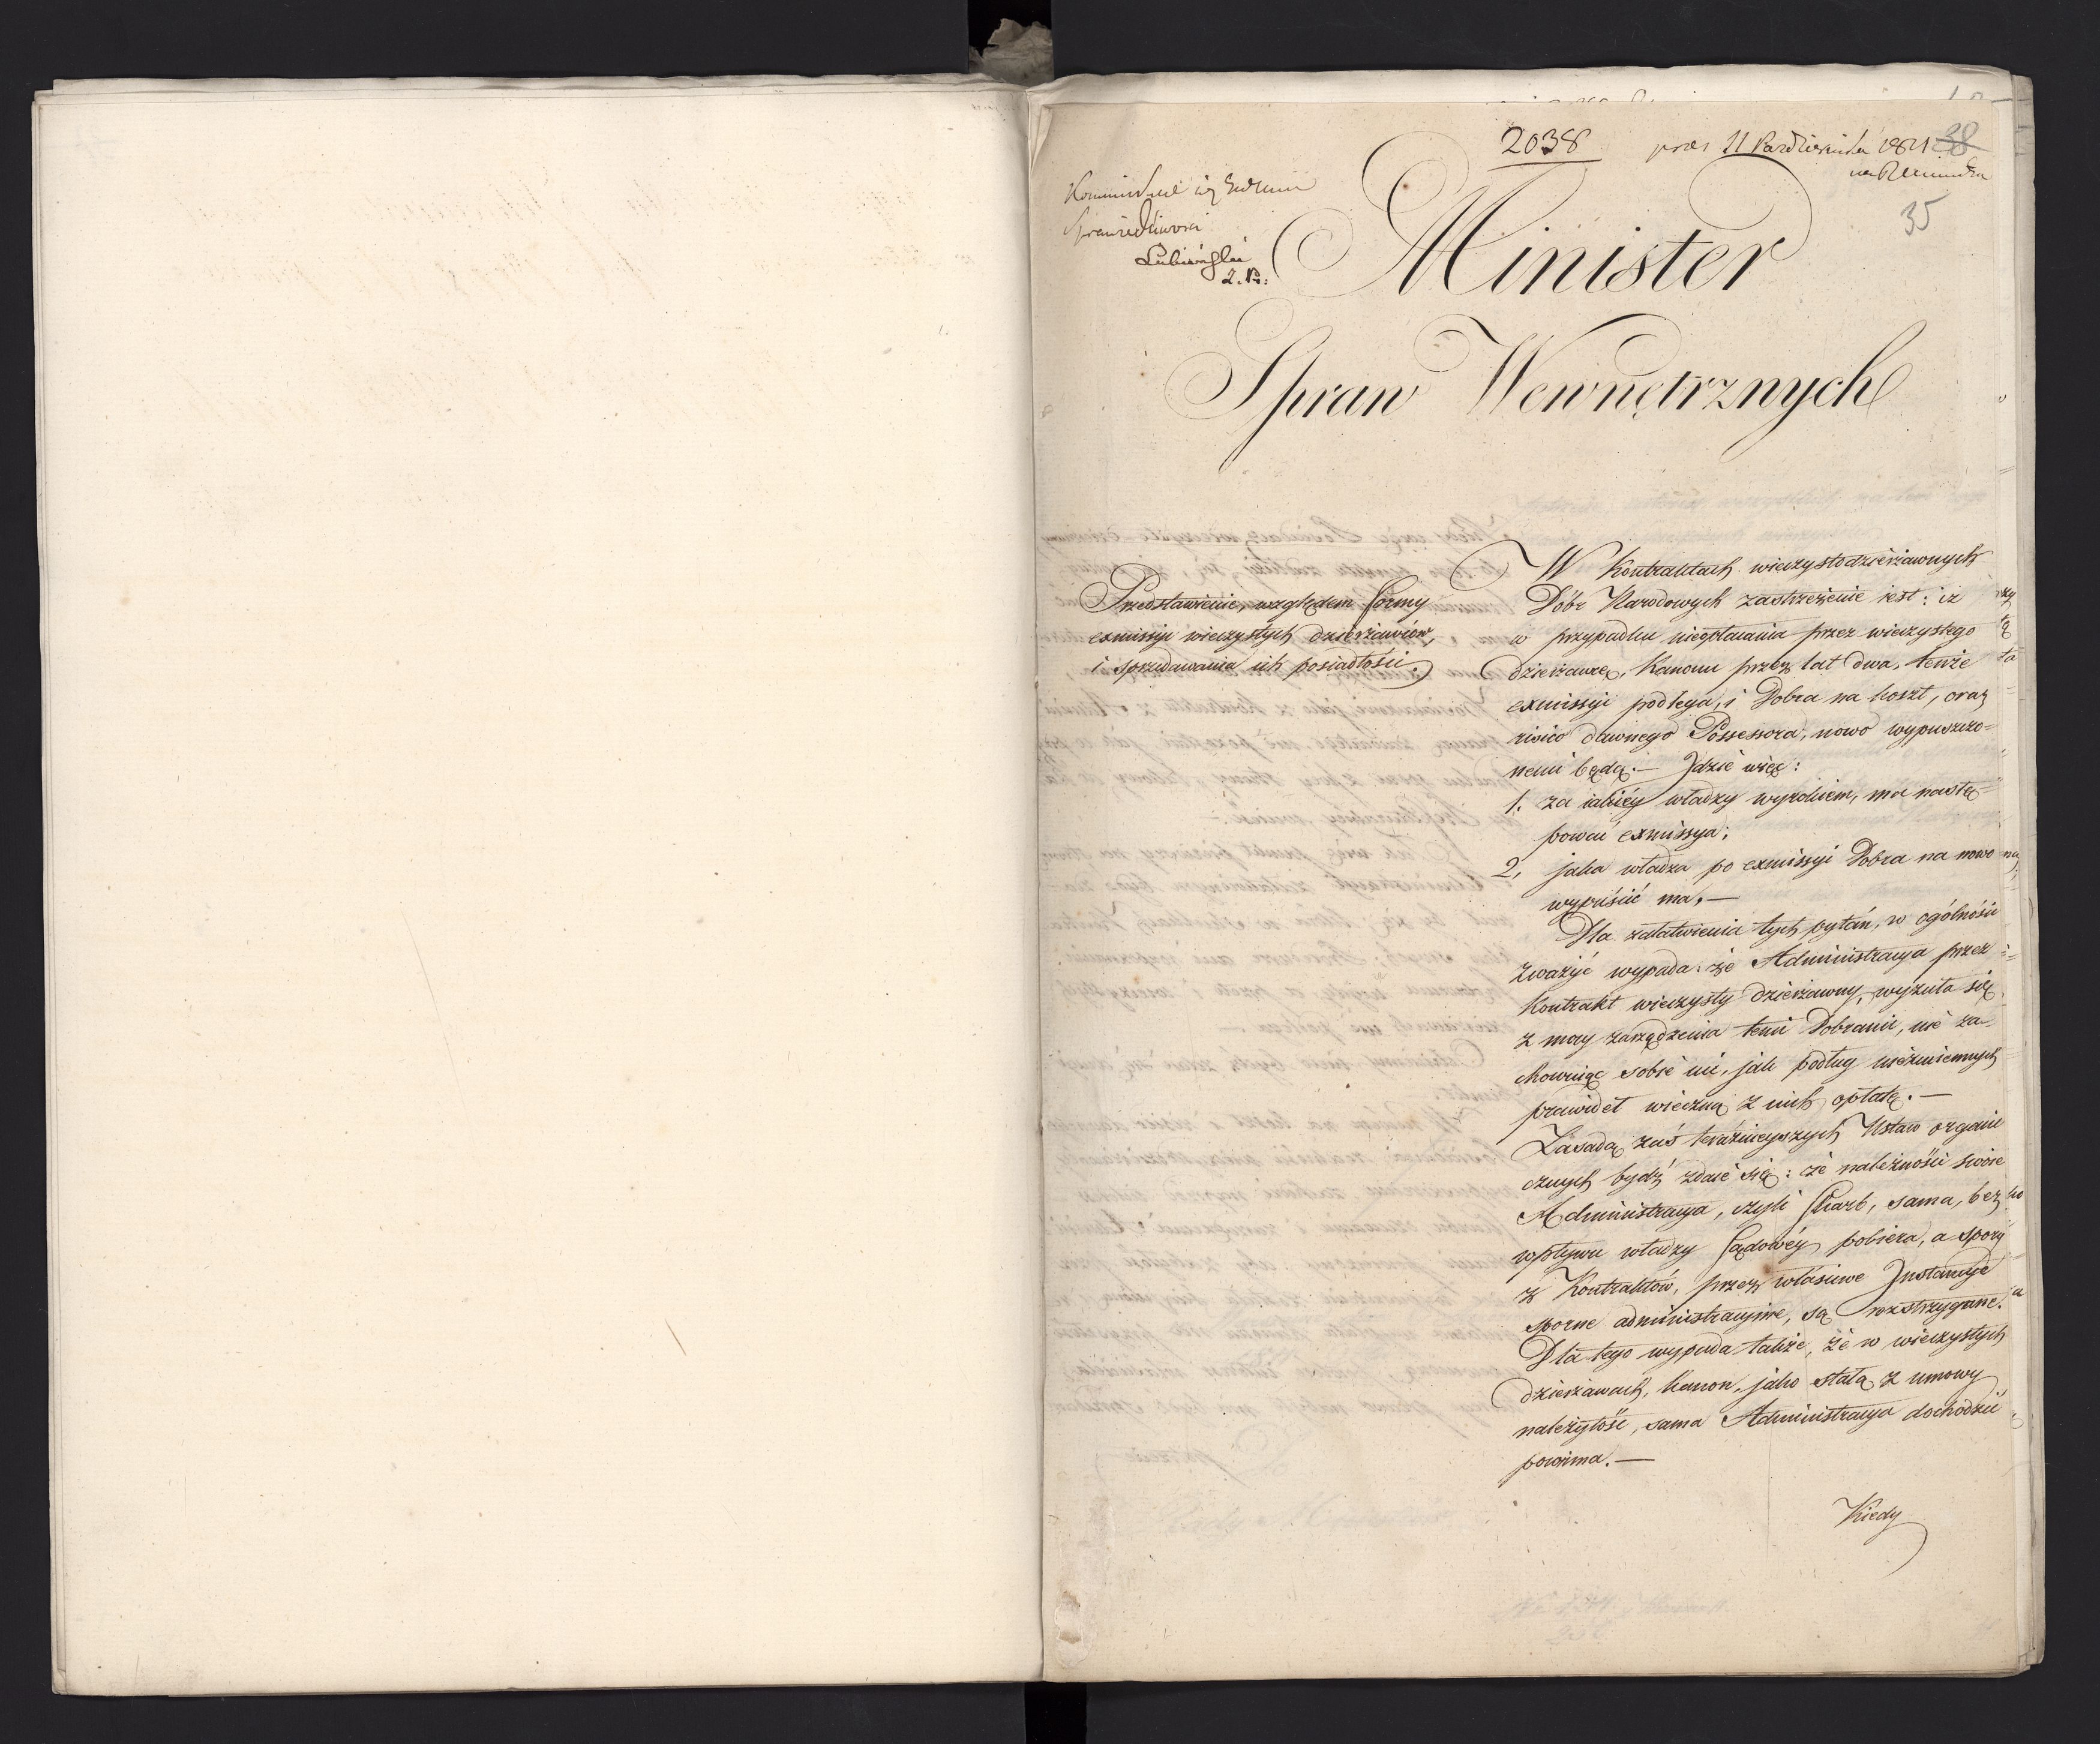 2038
11 Października 1821
38
35
Sprawiedliwości
Lubieński
Minister
Spraw Wewnętrznych
Przedstawienie, względem formy
exmissyi wieczystych dzierżawców,
i sprzedawania ich posiadłości.
W Kontraktach wieczystodzierżawnych
Dóbr Narodowych zastrzeżenie iest: iż
w przypadku nieopłacania przez wieczystego
dzierżawcę, Kanonu przez lat dwa, tenże
exmissyi podlega, i Dobra na koszt, oraz
risico dawnego Possessora, nowo wypuszczo=
nemi będą. — Idzie więc:
1. za iakiéy władzy wyrokiem, ma nastę=
pować exmissya;
2, jaka władza po exmissyi Dobra na nowo
wypuścić ma. —
Dla załatwienia tych pytań, w ogólności
zważyć wypada: że Administracya przez
Kontrakt wieczysty dzierżawny, wyzuła się
z mocy zarządzenia temi Dobrami, nie za-
chowuiąc sobie nic, jak podług niezmiennych
prawideł wieczną z nich opłatę. —
Zasadą zaś teraźnieyszych Ustaw organi
cznych bydź zdaie się: że należności swoie
Administracya, czyli Skarb, sama, bez
wpływu władzy Sądowéy pobiera, a spory
z Kontraktów, przez właściwe Instancye
sporne administracyine, są rozstrzygane.
Dla tego wypada także, że w wieczystych
dzierżawach, kanon, jako stałą z umowy
należytość, sama Administracya dochodzić
powinna. —
Kiedy